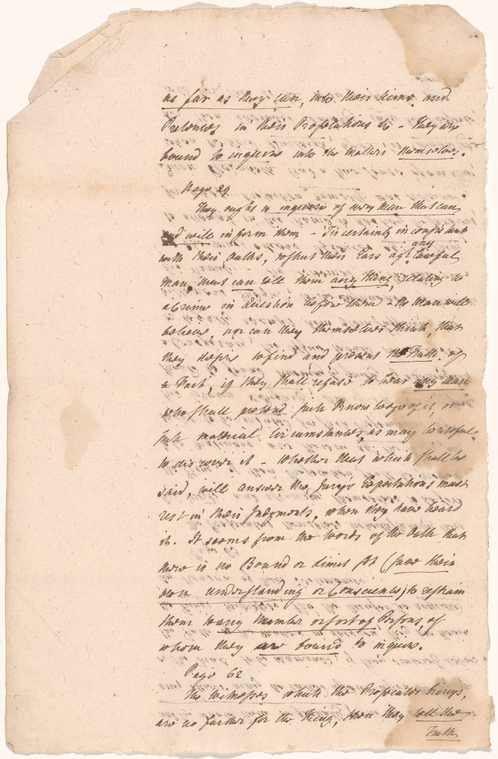 as far as they can, into their Aims and
Pretences in their Prosecutions &c - They are
bound to inquire into the Matters themselves.
Page 29
They ought to inquire of every Man that can
and will inform them - Tis certainly inconsistent
with their Oaths, to shut their Ears agt. any lawful
Man, that can tell them any thing relating to
a Crime in Question before them - No Man will
believe, nor can they themselves think that
they desire to find and present the Truth of
a Fact, if they shall refuse to hear any Man
who shall pretend such Knowledge of it, or
such material Circumstances, as may be useful
to discover it - Whether that which shall be
said, will answer the Jurys Expectations must
rest in their Judgments, when they have heard
it. It seems from the words of the Oath that
there is no Bound or limit set (save their
own understanding or Conscience) to restrain
them to any Number or sort of Persons, of
whom they are bound to inquire.
Page 62
The Witnesses which the Prosecutor brings,
are no further for the King, than they tell the
Truth,